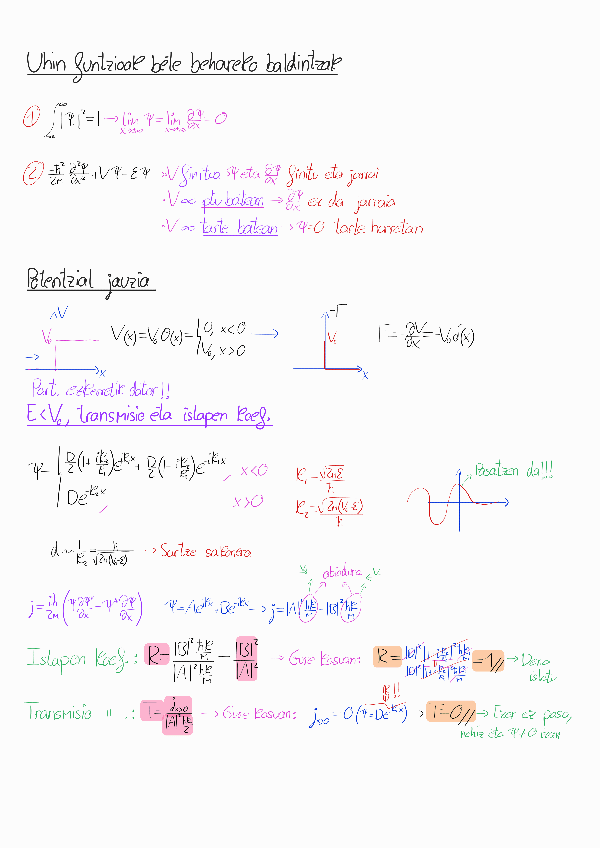 Uhin funtzioak bete beharreko baldintzak
① ∫|Ψ|²=1 → lim Ψ = lim ∂Ψ/∂x = 0
② -ħ²/2m ∂²Ψ/∂x² + VΨ = EΨ → V finitua Ψ eta ∂Ψ/∂x finitu eta jarrai
→ V ∞ ptu batean → ∂Ψ/∂x ez da jarraia
→ V ∞ tarte batean → Ψ=0 tarte horretan
Potentzial jauzia
V
V₀
x
V(x)=V₀θ(x)= { 0, x<0
V₀, x>0
→
-F
V₀
x
F = -∂V/∂x = -V₀δ(x)
Part. ezkerretik dator!!
E<V₀, transmisio eta islapen koef.
Ψ= { D/2(1+ik₂/k₁)e^{ik₁x} + D/2(1-ik₂/k₁)e^{-ik₁x}, x<0
De^{-k₂x}, x>0
k₁=√2mE/ħ
k₂=√2m(V₀-E)/ħ
Pasatzen da!!!
d=1/k₂=ħ/√2m(V₀-E) → Sartze sakonera
abiadura
j=iħ/2m(Ψ∂Ψ*/∂x - Ψ*∂Ψ/∂x) Ψ=Ae^{ikx}+Be^{-ikx} → j=|A|²ħk/m - |B|²ħk/m
Islapen koef.: R=|B|²ħk/m / |A|²ħk/m = |B|²/|A|² → Gure kasuan: R= =1// → Dena islatu
Transmisio " .: T=j_{x>0}/|A|²ħk/m → Gure kasuan: j_{x>0}=0 (Ψ=De^{-k₂x}) → T=0// → Ezer ez pasa,
nahiz eta Ψ≠0 izan